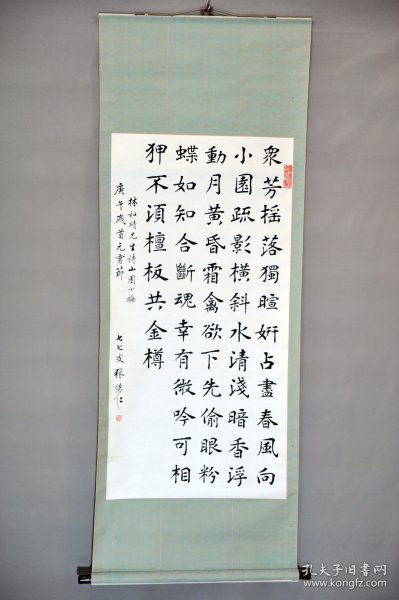 衆芳揺落獨暄妍占盡春風向
小園疏影橫斜水清淺暗香浮
動月黃昏霜禽欲下先偷眼粉
蝶如知合斷魂幸有微吟可相
狎不須檀板共金樽
林和靖先生詩山園小梅
庚午歲首元宵節
七七叟張仁
孔夫子旧书网
www.kongfz.com